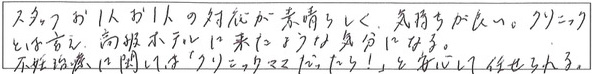 スタッフお1人お1人の対応が素晴らしく、気持ちが良い。クリニック
とは言え、高級ホテルに来たような気分になる。
不妊治療に関しては「クリニックママだったら!」と安心して任せられる。